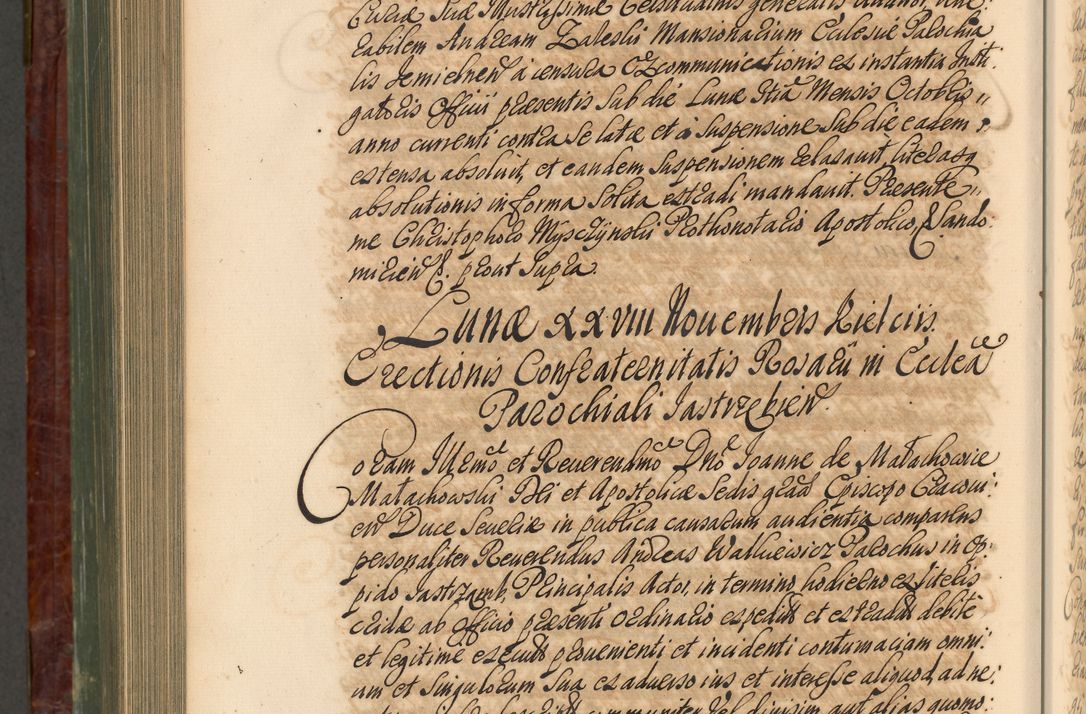 Curiæ Suæ Illustrissimæ Celsitudinis generalis Auditor, vene:
rabilem Andream Zaleski Mansionarium Ecclesiæ Parochia
lis Jemielnen̄ à censura Excommunicationis ex instantia Insti:
gatoris Officii præsentis sub die Lunæ 3tia Mensis Octobris
anno currenti contra se latæ et à suspensione sub die eadem
extensa absoluit, et eandem suspensionem relaxauit, literasq
absolutionis in forma solita extradi mandauit. Præsente
me Christophoro Mysczÿnski Prothonotario Apostolico, Sando
mirien̄ C. prout supra.
Lunæ xxviii Nouembris Kielciis.
Erectionis Confraternitatis Rosarii in Ecclea
Parochiali Jastrzebien̄.
Coram Illmo et Reuerendmo Dno Joanne de Małachowice
Małachowski Dei et Apostolicæ Sedis gratia Episcopo Cracoui:
en̄ Duce Seueriæ in publica causarum audientia comparens
personaliter Reuerendus Andreas Walkiewicz Parochus in op:
pido Jastrzamb, Principalis Actor, in termino hodierno ex literis
cridæ ab officio præsenti ordinario expeditis et extraditis debitè
et legitimè executis prouenienti et incidenti contumaciam omni:
um et singulorum sua ex aduerso ius et interesse aliquod ad ne:
communiter vel diuisim aut alias quomo: